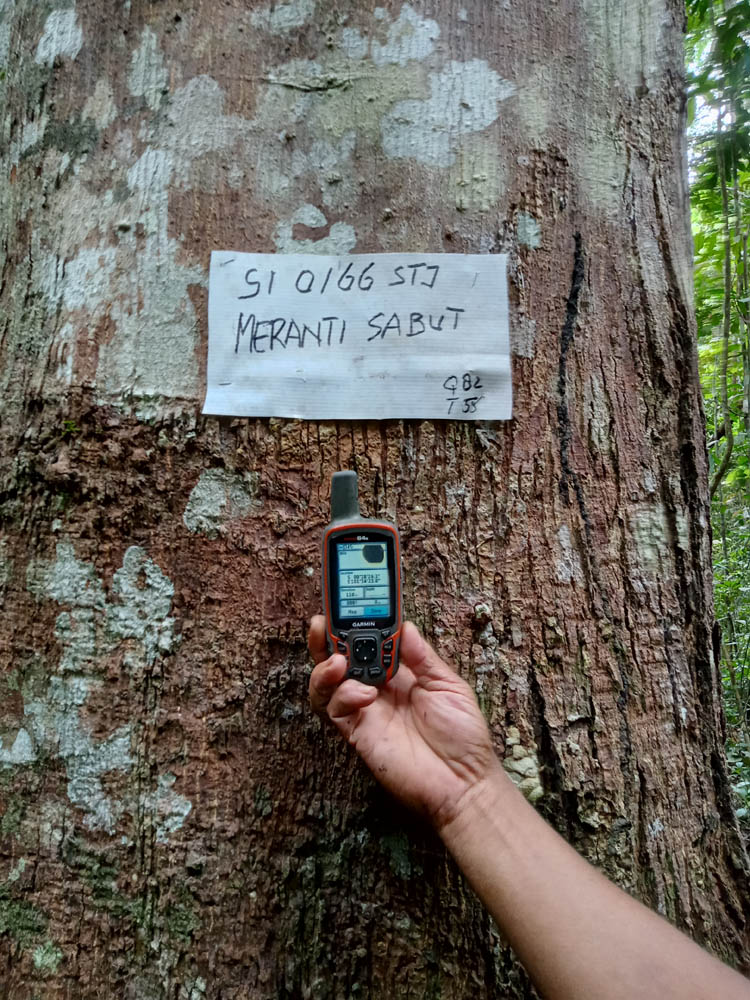 SI 0166 STJ
MERANTI SABUT
Q 82
T 55
64s
GARMIN